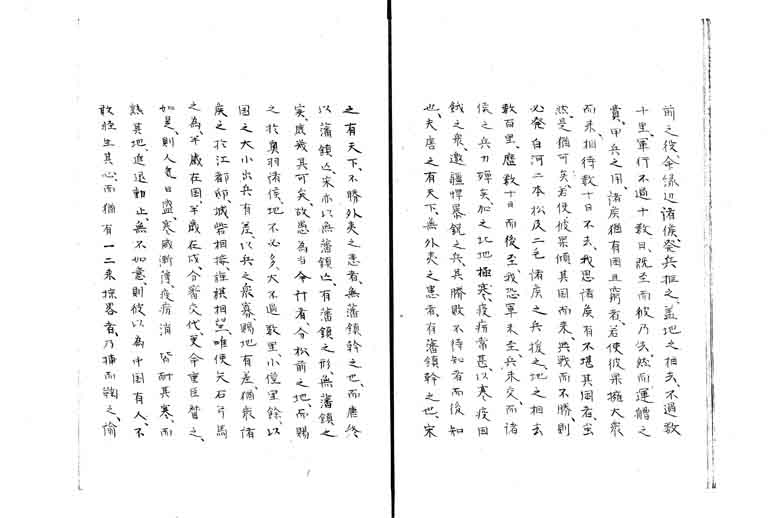 前之役、命縁辺諸侯、発兵拒之、蓋地之相去、不過数
十里、軍行不過十数日、既至而彼乃去、然而運艚之
費、甲兵之用、諸侯猶有困且窮者、若使彼来擁大衆
而来、相持数十日不去、我恐諸侯有不堪其困者、虽
然、是猶可矣、若使彼果傾其国而来、与戦而不勝、則
必発白河二本松及二毛諸侯之兵援之、地之相去
数百里、歴数十日而後至、我恐軍未至、兵未交、而諸
侯之兵力殫矣、加之北地極寒、疫痢常甚、以寒疫困
餓之衆、邀疆悍暴鋭之兵、其勝敗不待知者而後知
也、夫唐之有天下、無外夷之患者、有藩鎮幹之也、宋
之有天下、不勝外夷之患者、無藩鎮幹之也、而唐終
以藩鎮亡、宋亦以無藩鎮亡、有藩鎮之形、無藩鎮之
実、庶幾其可矣、故愚為当今計者、分松前之地、而賜
之於奥羽諸侯、地不必多、大不過数里、小僅里餘、以
国之大小出兵有差、以兵之衆寡賜地有差、猶衆諸
侯之於江都邸、城砦相接、雑棋相望、唯便矢石弓馬
之為、半歳在国、半歳在戍、分番交代、更命重臣督之、
如是、則人気日盛、寒威漸薄、疫痢消 皆耐其寒、而
熟其地、進退動止、無不如意、則彼以為中国有人、不
敢経生其心、而猶有一二来掠畧者、乃捕而鞠之、愉